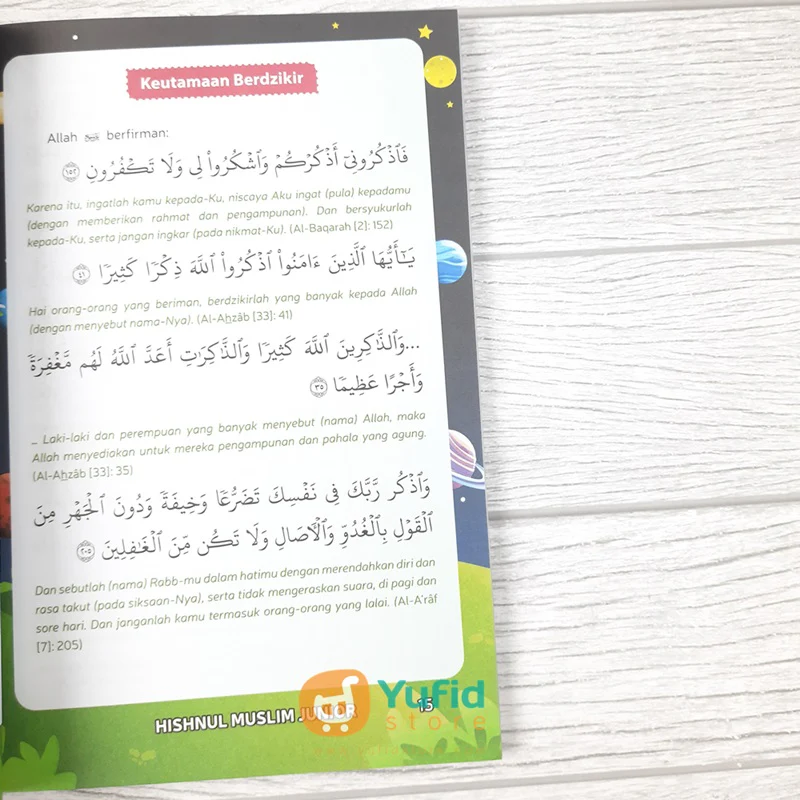 Keutamaan Berdzikir
Allah berfirman:
فَٱذْكُرُونِىٓ أَذْكُرْكُمْ وَٱشْكُرُوا۟ لِى وَلَا تَكْفُرُونِ ١٥٢
Karena itu, ingatlah kamu kepada-Ku, niscaya Aku ingat (pula) kepadamu
(dengan memberikan rahmat dan pengampunan). Dan bersyukurlah
kepada-Ku, serta jangan ingkar (pada nikmat-Ku). (Al-Baqarah [2]: 152)
يَـٰٓأَيُّهَا ٱلَّذِينَ ءَامَنُوا۟ ٱذْكُرُوا۟ ٱللَّهَ ذِكْرًا كَثِيرًا ٤١
Hai orang-orang yang beriman, berdzikirlah yang banyak kepada Allah
(dengan menyebut nama-Nya). (Al-Aẖzâb [33]: 41)
...وَٱلذَّٰكِرِينَ ٱللَّهَ كَثِيرًا وَٱلذَّٰكِرَٰتِ أَعَدَّ ٱللَّهُ لَهُم مَّغْفِرَةً
وَأَجْرًا عَظِيمًا ٣٥
... Laki-laki dan perempuan yang banyak menyebut (nama) Allah, maka
Allah menyediakan untuk mereka pengampunan dan pahala yang agung.
(Al-Aẖzâb [33]: 35)
وَٱذْكُر رَّبَّكَ فِى نَفْسِكَ تَضَرُّعًا وَخِيفَةً وَدُونَ ٱلْجَهْرِ مِنَ
ٱلْقَوْلِ بِٱلْغُدُوِّ وَٱلْـَٔاصَالِ وَلَا تَكُن مِّنَ ٱلْغَـٰفِلِينَ ٢٠٥
Dan sebutlah (nama) Rabb-mu dalam hatimu dengan merendahkan diri dan
rasa takut (pada siksaan-Nya), serta tidak mengeraskan suara, di pagi dan
sore hari. Dan janganlah kamu termasuk orang-orang yang lalai. (Al-A'râf
[7]: 205)
HISHNUL MUSLIM JUNIOR 15
Yufid
store